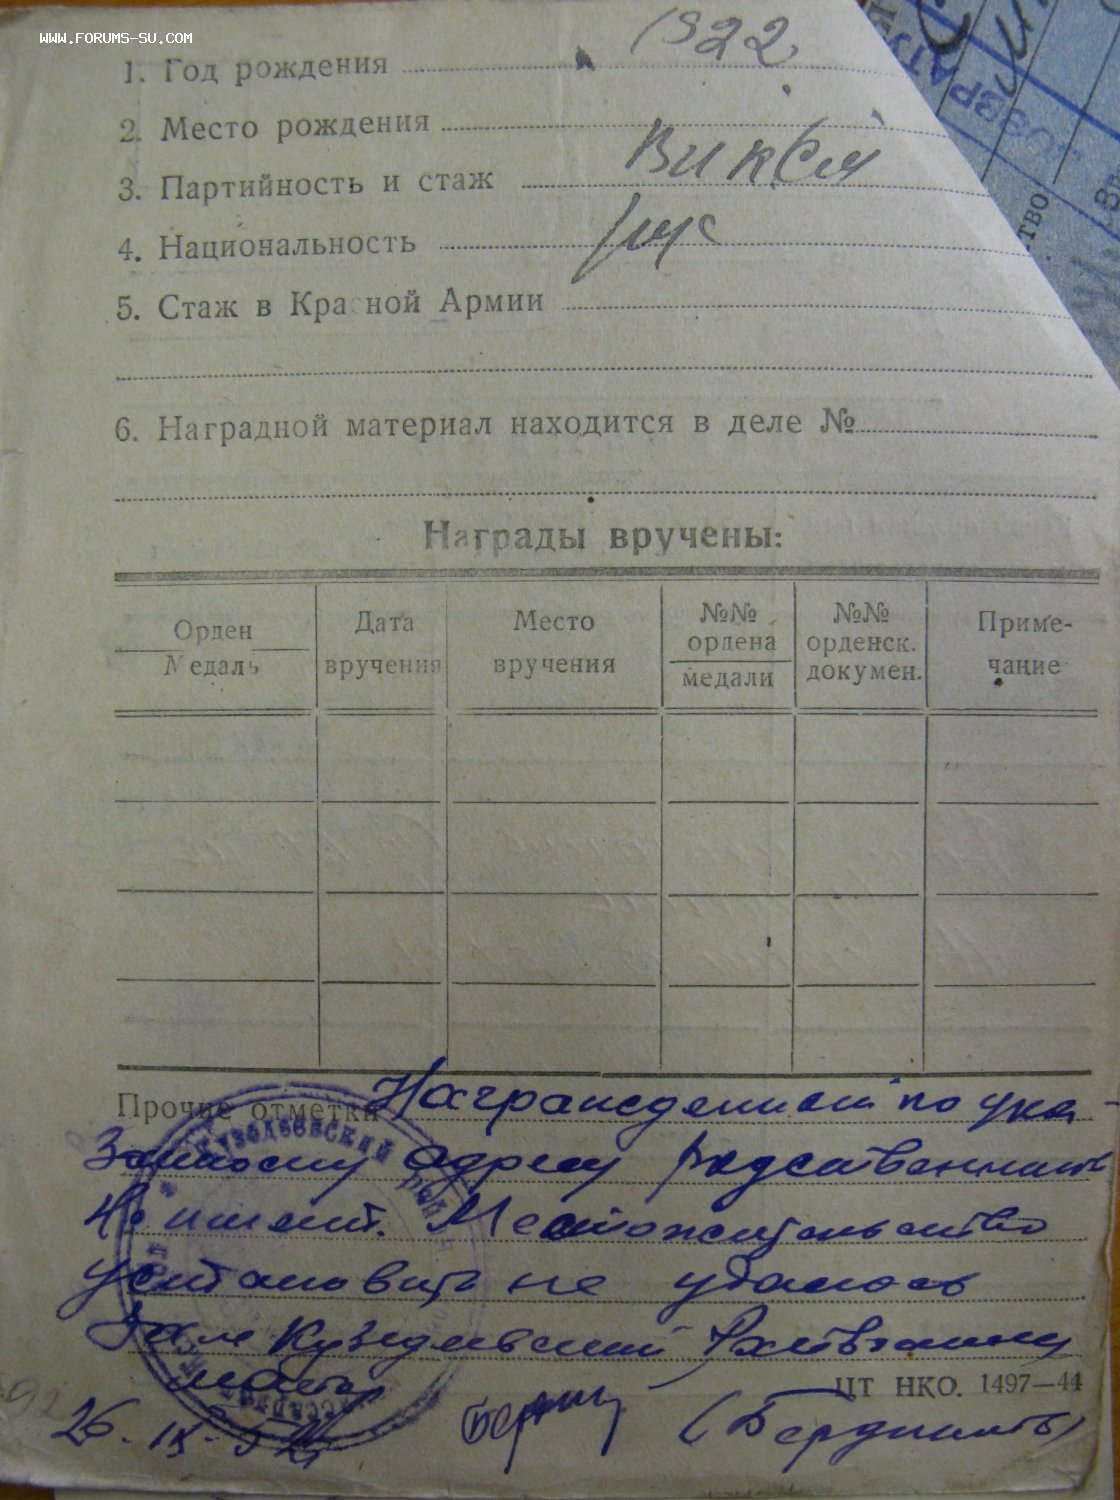 WWW.FORUMS-SU.COM
1. Год рождения 1922
2. Место рождения
3. Партийность и стаж ВЛКСМ
4. Национальность рус
5. Стаж в Красной Армии
6. Наградной материал находится в деле №
Награды вручены:
Орден
Медаль
Дата
вручения
Место
вручения
№№
ордена
медали
№№
орденск.
докумен.
Приме-
чание
Прочие отметки Награжденный по ука-
занному адресу родственников
не имеет. Местожительство
установить не удалось
майор
ЦТ НКО. 1497—44
26